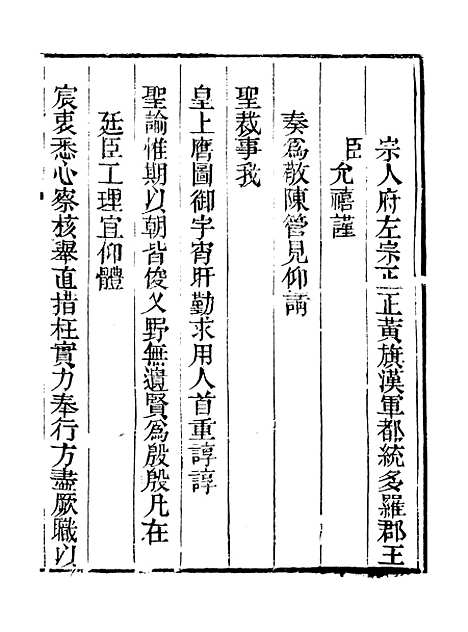 宗人府左宗正正黃旗漢軍都統多羅郡王
臣允禧謹
奏爲敬陳管見仰請
聖裁事我
皇上膺圖御宇宵旰勤求用人首重諄諄
聖諭惟期以朝皆俊乂野無遺賢爲殷殷凡在
廷臣工理宜仰體
宸衷悉心察核舉直措枉實力奉行方盡厥職以